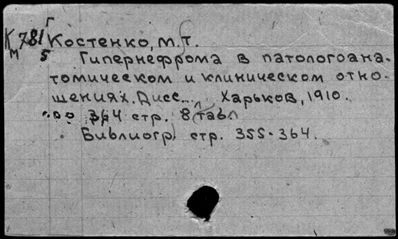 К 781 Г Костенко, М.Т.
М 5 Гипернефрома в патологоана-
томическом и клиническом отно-
шениях. Дисс... Харьков, 1910.
364 стр. 8 табл
Библиогр. стр. 355-364.